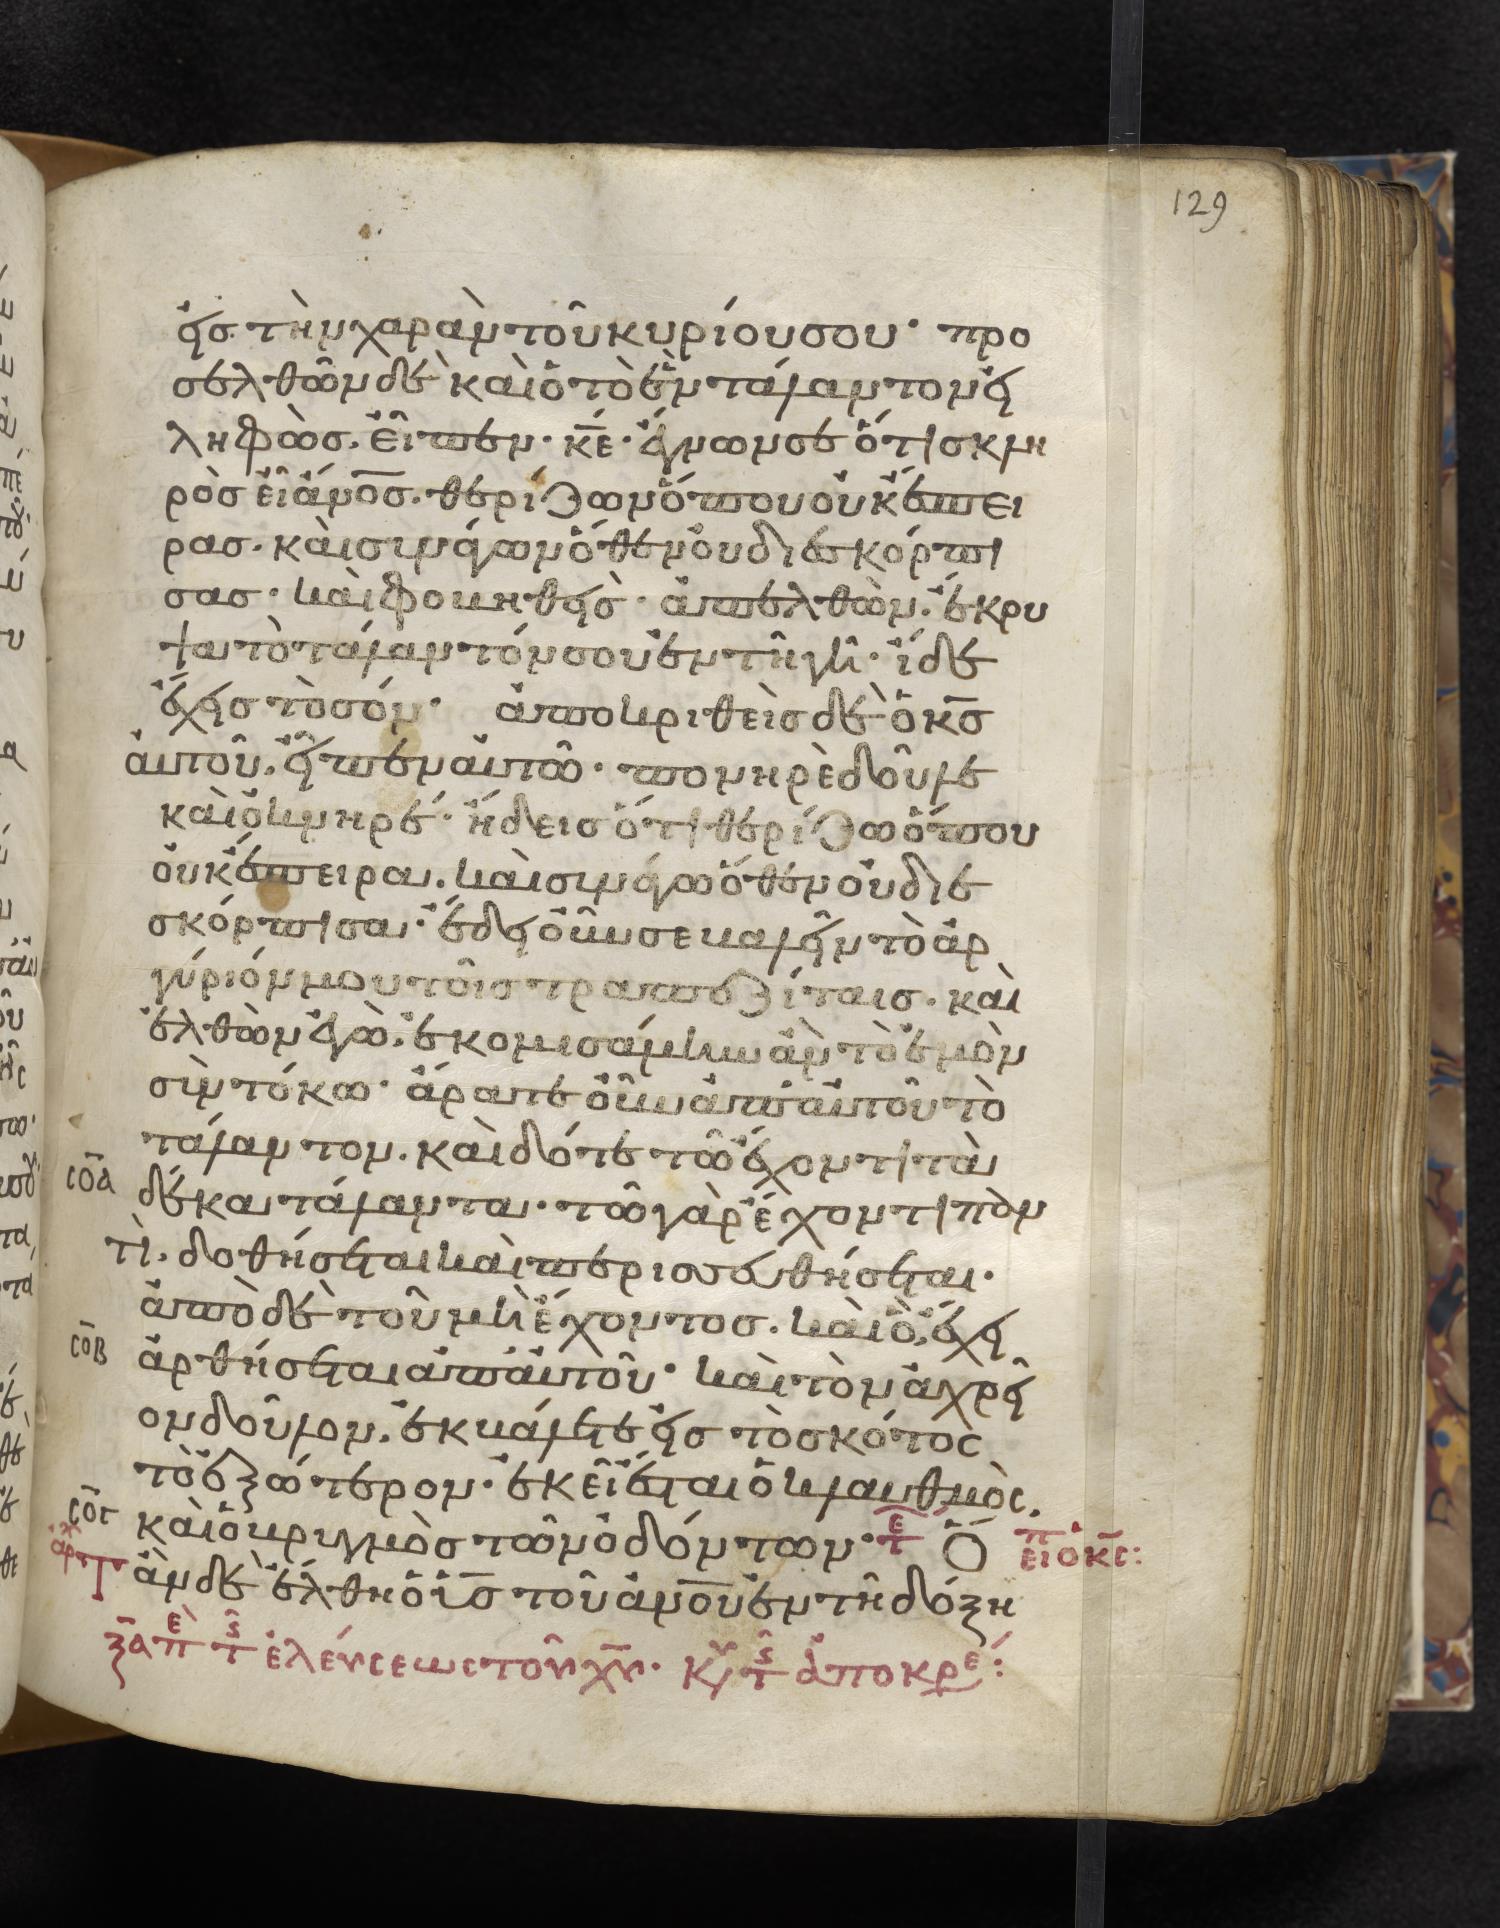 129
εἰς τὴν χαρὰν τοῦ κυρίου σου· προ
σελθῶν δὲ καὶ ὁ τὸ ἓν τάλαντον εἰ
ληφὼσ. εἶπεν· κ̅ε̅· ἔγνων σε ὅτι σκλη
ρὸσ εἶ ἄν̅ο̅σ̅. θερίζων ὅπου οὐκ ἔσπει
ρασ. καὶ συνάγων ὅθεν οὐ διεσκόρπι
σασ· καὶ φοβηθεὶς· ἀπελθὼν. ἔκρυ
ψα τὸ τάλαντόν σου ἐν τῆ γῆ· ἴδε
ἔχεις τὸ σόν· ἀποκριθεὶσ δὲ ὁ κ̅σ̅
ἀυτοῦ. εἶπεν ἀυτῶ· πονηρὲ δοῦλε
καὶ ὀκνηρέ· ἤδεισ ὅτι θερίζω ὅπου
οὐκ ἔσπειρα. καὶ συνάγω ὅθεν οὐ διε
σκόρπισα· ἔδει οὖν σε βαλεῖν τὸ ἀρ
γύριόν μου τοῖσ τραπεζίταισ. καὶ
ἐλθὼν ἐγὼ. ἐκομισάμην ἂν τὸ ἐμὸν
σὺν τόκω· ἄρατε οὖν ἀπ' ἀυτοῦ τὸ
τάλαντον. καὶ δότε τῶ ἔχοντι τὰ
σ̅ο̅α̅ δέκα τάλαντα· τῶ γὰρ ἔχοντι πὰν
τὶ. δοθήσεται καὶ περισσευθήσεται·
ἀπὸ δὲ τοῦ μὴ ἔχοντοσ. καὶ ὃ ἔχει
σ̅ο̅β̅ ἀρθήσεται ἀπ' ἀυτοῦ· καὶ τὸν ἀχρεῖ
ον δοῦλον. ἐκβάλετε εἰς τὸ σκότος
τὸ ἐξώτερον· ἐκεῖ ἔσται ὁ κλαυθμὸς.
σ̅ο̅γ̅ καὶ ὁ βρυγμὸσ τῶν ὀδόντων· τε Ὅ
πει ὁ κ̅ς̅:
ἀρχ τ ἂν δὲ ἔλθη ὁ υἱ̅σ̅ τοῦ ἀν̅ο̅υ̅ ἐν τῆ δόξη
ξ̅α̅ πε τς ἐλεύσεως τοῦ χ̅υ̅· κυ τς ἀποκρε: